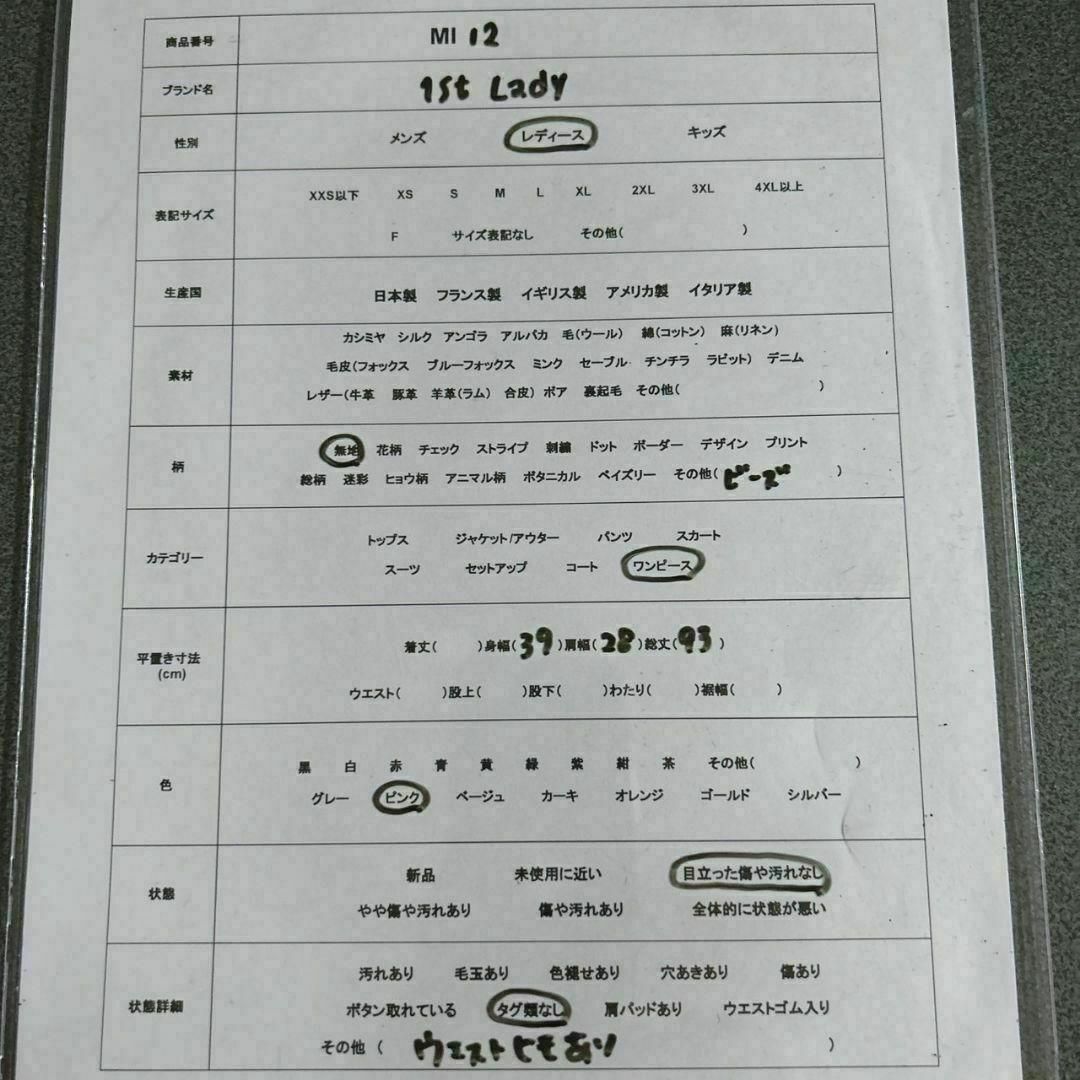 商品番号 MI 12
ブランド名 1st Lady
性別 メンズ レディース キッズ
XXS以下 XS S M L XL 2XL 3XL 4XL以上
表記サイズ
F サイズ表記なし その他( )
生産国 日本製 フランス製 イギリス製 アメリカ製 イタリア製
カシミヤ シルク アンゴラ アルパカ 毛(ウール) 綿(コットン) 麻(リネン)
素材 毛皮(フォックス ブルーフォックス ミンク セーブル チンチラ ラビット) デニム
レザー(牛革 豚革 羊革(ラム) 合皮) ボア 裏起毛 その他( )
無地 花柄 チェック ストライプ 刺繍 ドット ボーダー デザイン プリント
柄
総柄 迷彩 ヒョウ柄 アニマル柄 ボタニカル ペイズリー その他(ビーズ )
トップス ジャケット/アウター パンツ スカート
カテゴリー
スーツ セットアップ コート ワンピース
平置き寸法 着丈( )身幅(39)肩幅(28)総丈(93)
(cm) ウエスト( )股上( )股下( )わたり( )裾幅( )
黒 白 赤 青 黄 緑 紫 紺 茶 その他( )
色
グレー ピンク ベージュ カーキ オレンジ ゴールド シルバー
新品 未使用に近い 目立った傷や汚れなし
状態
やや傷や汚れあり 傷や汚れあり 全体的に状態が悪い
汚れあり 毛玉あり 色褪せあり 穴あきあり 傷あり
状態詳細 ボタン取れている タグ類なし 肩パッドあり ウエストゴム入り
その他 ( ウエストヒモあり )